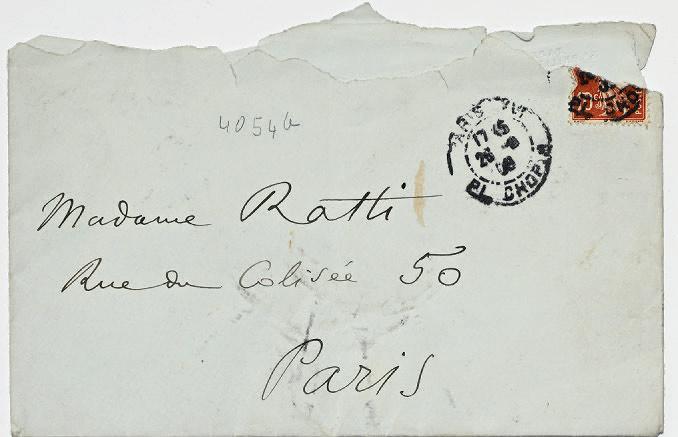 4054b
PARIS XVI
17 45
26 - 8
08
PL CHOPIN
Madame Ratti
Rue du Colisée 50
Paris